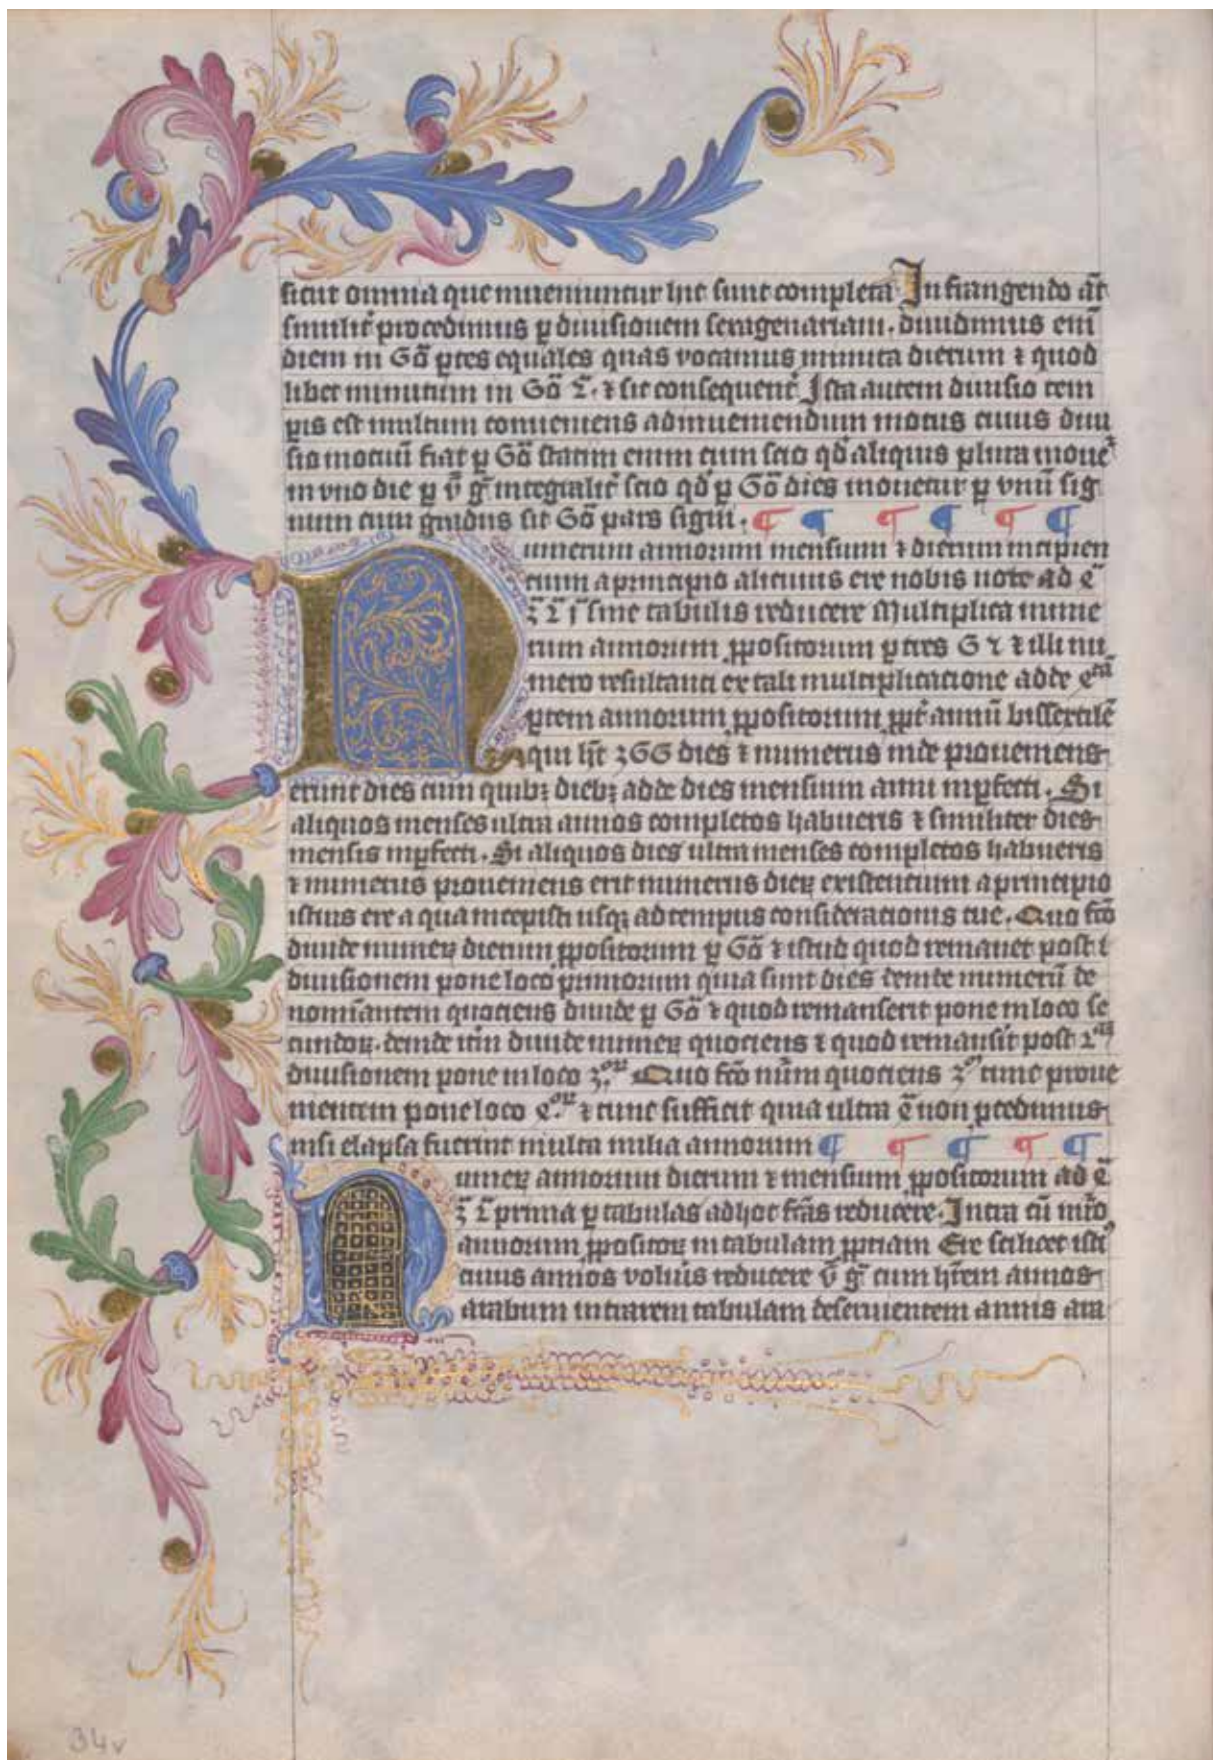 sicut omnia que inueniuntur hic sunt completa In frangendo aūt
similit̄ procedimus ꝑ diuisionem sexagenariam. diuidimus enī
diem in 60 ꝑtes equales quas vocamus minuta dierum ⁊ quod
libet minutum in 60 2̄. ⁊ sic consequent̄ Ista autem diuisio tem
ꝑis est multum conueniens ad inueniendum motus cuius diui
sio motuū fiat ꝑ 60 statim enim cum scio qd̄ aliquis plura mouet̄
in vno die ꝑ v̄ ḡ integralit̄ scio qd̄ ꝑ 60 dies mouetur ꝑ vnū sig
num cum gradus sit 60 pars signi. ¶ ¶ ¶ ¶ ¶ ¶
Numerum annorum mensium ⁊ dierum incipien
cium a principio alicuius ere nobis note ad 4̄
3̄ 2̄ 1̄ sine tabulis reducere Multiplica nume
rum annorum ꝓpositorum ꝑ tres 6 5 ⁊ illi nu
mero resultanti ex tali multiplicatione adde 4tā
ꝑtem annorum ꝓpositorum ꝓpt̄ annū bissextilē
qui hēt 366 dies ⁊ numerus inde proueniens
erunt dies cum quibꝫ diebꝫ adde dies mensium anni inꝑfecti. Si
aliquos menses ultra annos completos habueris ⁊ similiter dies
mensis inꝑfecti. Si aliquos dies ultra menses completos habueris
⁊ numerus proueniens erit numerus dieꝝ existencium a principio
istius ere a qua incepisti usqꝫ ad tempus consideracionis tue. Quo fc̄o
diuide numeꝝ dierum ꝓpositorum ꝑ 60 ⁊ istud quod remanet post
diuisionem pone loco primorum quia sunt dies deinde numerū de
nomīantem quociens diuide ꝑ 60 ⁊ quod remanserit pone in loco se
cundoꝝ. deinde itm̄ diuide numeꝝ quociens ⁊ quod remansit post 2am
diuisionem pone in loco 3orum Quo fc̄o nūm quociens 3o tunc proue
nientem pone loco 4orum ⁊ tunc sufficit quia ultra 4̄ non ꝓcedimus
nisi elapsa fuerint multa milia annorum ¶ ¶ ¶ ¶ ¶
Numeꝝ annorum dierum ⁊ mensium ꝓpositorum ad 4̄
3̄ 2̄ prima ꝑ tabulas ad hoc fc̄as reducere. Intra cū nūo
annorum ꝓpositoꝝ in tabulam ꝓpriam Ere scilicet isti9
cuius annos voluis reducere v̄ ḡ cum hr̄em annos
arabum intrarem tabulam deseruientem annis ara
34v